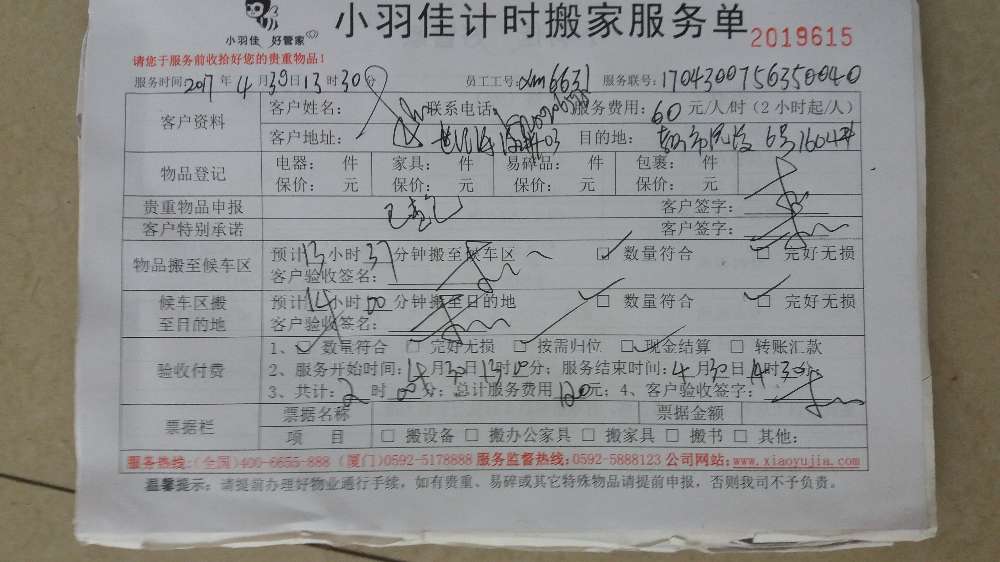 小羽佳计时搬家服务单
小羽佳 好管家
2019615
请您于服务前收拾好您的贵重物品!
服务时间:2017年4月30日13时30分 员工工号:xm6631 服务联号:1704300756350040
客户资料
客户姓名: 联系电话: 服务费用:60元/人/时(2小时起/人)
客户地址: 目的地: 6号1604
物品登记
电器: 件 家具: 件 易碎品: 件 包裹: 件
保价: 元 保价: 元 保价: 元 保价: 元
贵重物品申报 客户签字:
客户特别承诺 客户签字:
物品搬至候车区
预计13小时37分钟搬至候车区 ☑ 数量符合 ☑ 完好无损
客户验收签名:
候车区搬至目的地
预计14小时00分钟搬至目的地 ☑ 数量符合 ☑ 完好无损
客户验收签名:
验收付费
1、☑ 数量符合 □ 完好无损 □ 按需归位 ☑ 现金结算 □ 转账汇款
2、服务开始时间:4月30日13时 分;服务结束时间:4月30日14时30分;
3、共计:2时00分;总计服务费用120元;4、客户验收签字:
票据栏
票据名称 票据金额
项 目 □ 搬设备 □ 搬办公家具 □ 搬家具 □ 搬书 □ 其他:
服务热线:(全国)400-6655-888 (厦门)0592-5178888 服务监督热线:0592-5888123 公司网站:www.xiaoyujia.com
温馨提示:请提前办理好物业通行手续,如有贵重、易碎或其它特殊物品请提前申报,否则我司不予负责。